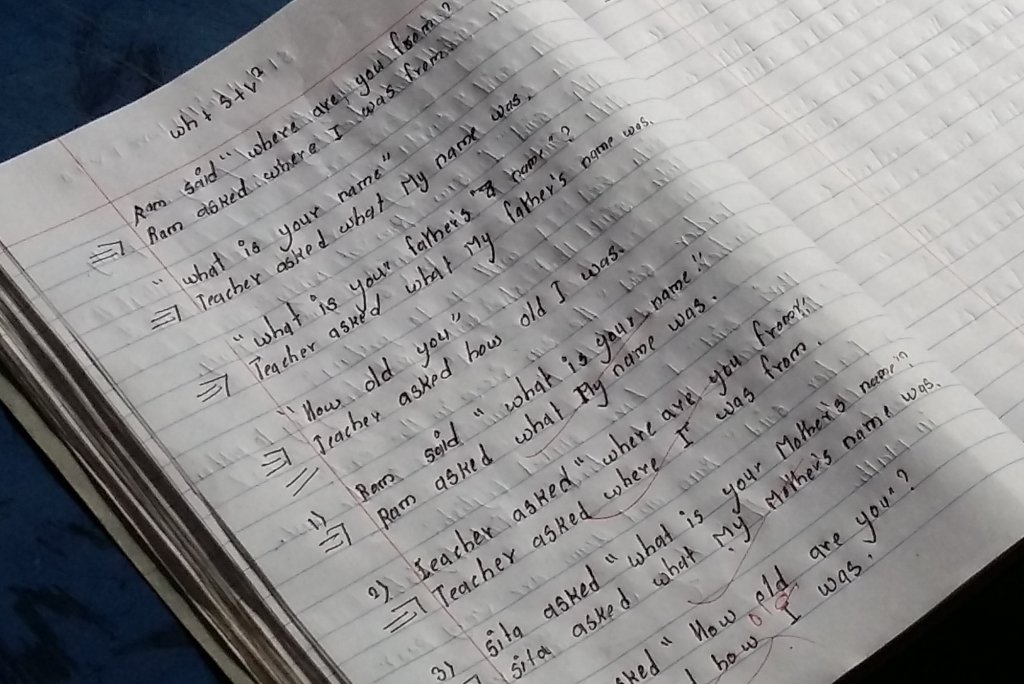 wh + S + v²
Ram said "where are you from?
⇒ Ram asked where I was from.
"what is your name"
⇒ Teacher asked what My name was.
"what is your father's name"?
⇒ Teacher asked what My father's name was.
"How old you"
⇒ Teacher asked how old I was.
1) Ram said "what is your name."
⇒ Ram asked what My name was.
2) Teacher asked "where are you from."
⇒ Teacher asked where I was from.
3) sita asked "what is your Mother's name"?
⇒ sita asked what My Mother's name was.
asked "How old are you"?
how I was.